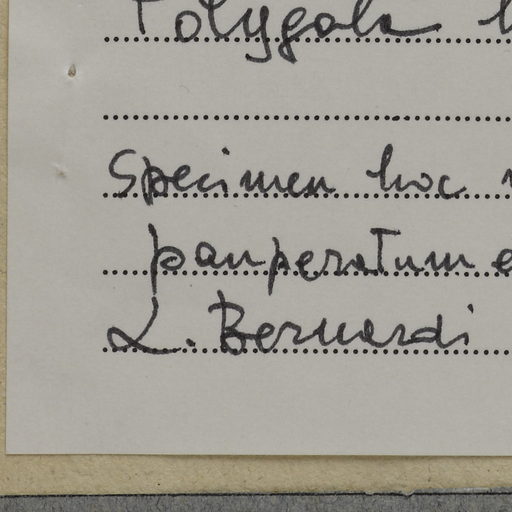 Polygala
Specimen hoc
pauperatum e
L. Bernardi